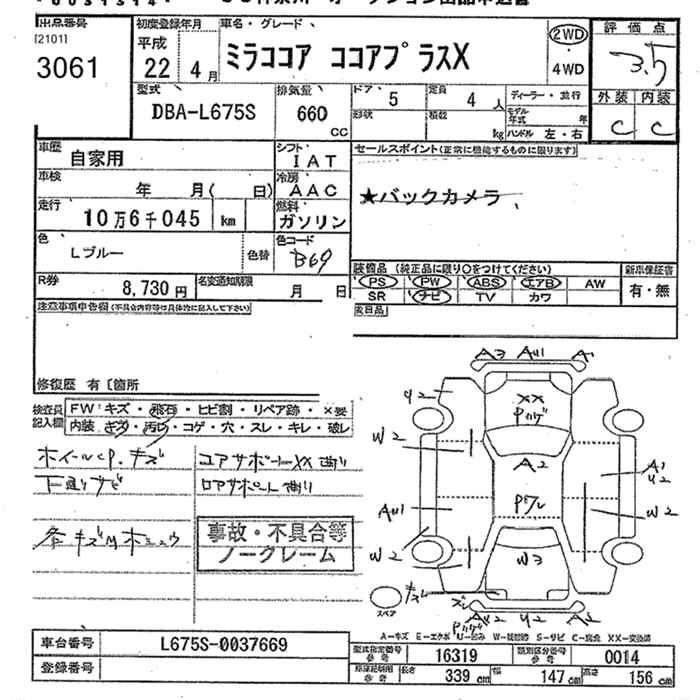 出品番号
[2101]
3061
初度登録年月
平成
22 4月
車名・グレード
ミラココア ココアプラスX
2WD
4WD
評価点
3.5
外装 内装
C C
型式
DBA-L675S
排気量
660
CC
ドア 5
形状
定員 4 人
積載 kg
ディーラー・並行
モデル年式 年
ハンドル 左・右
車歴
自家用
シフト
IAT
セールスポイント(正常に機能するものに限ります)
★バックカメラ
車検
年 月( 日)
冷房
AAC
走行
10万6千045 km
燃料
ガソリン
色
Lブルー
色替
色コード
B69
装備品 (純正品に限り○をつけてください)
PS PW ABS エアB AW
SR ナビ TV カワ
新車保証書
有・無
R券
8,730円
名変通知期限
月 日
注意事項申告欄(不具合内容等は具体的に記入して下さい)
修復歴 有〔箇所
検査員記入欄
FW キズ・飛石・ヒビ割・リペア跡・×要
内装 キズ・汚れ・コゲ・穴・スレ・キレ・破レ
ホイールCP. キズ
下廻りサビ
コアサポートXX曲り
ロアサポート曲り
事故・不具合等
ノークレーム
A3 AW1 A1
XX
A2
W2
W2
AW1
W2
W3
W2
スペア
A2
A-キズ E-エクボ U-凹み W-補修跡 S-サビ C-腐食 XX-交換済
車台番号
L675S-0037669
登録番号
型式指定番号
参考
16319
類別区分番号
参考
0014
長さ 339 cm
幅 147 cm
高さ 156 cm